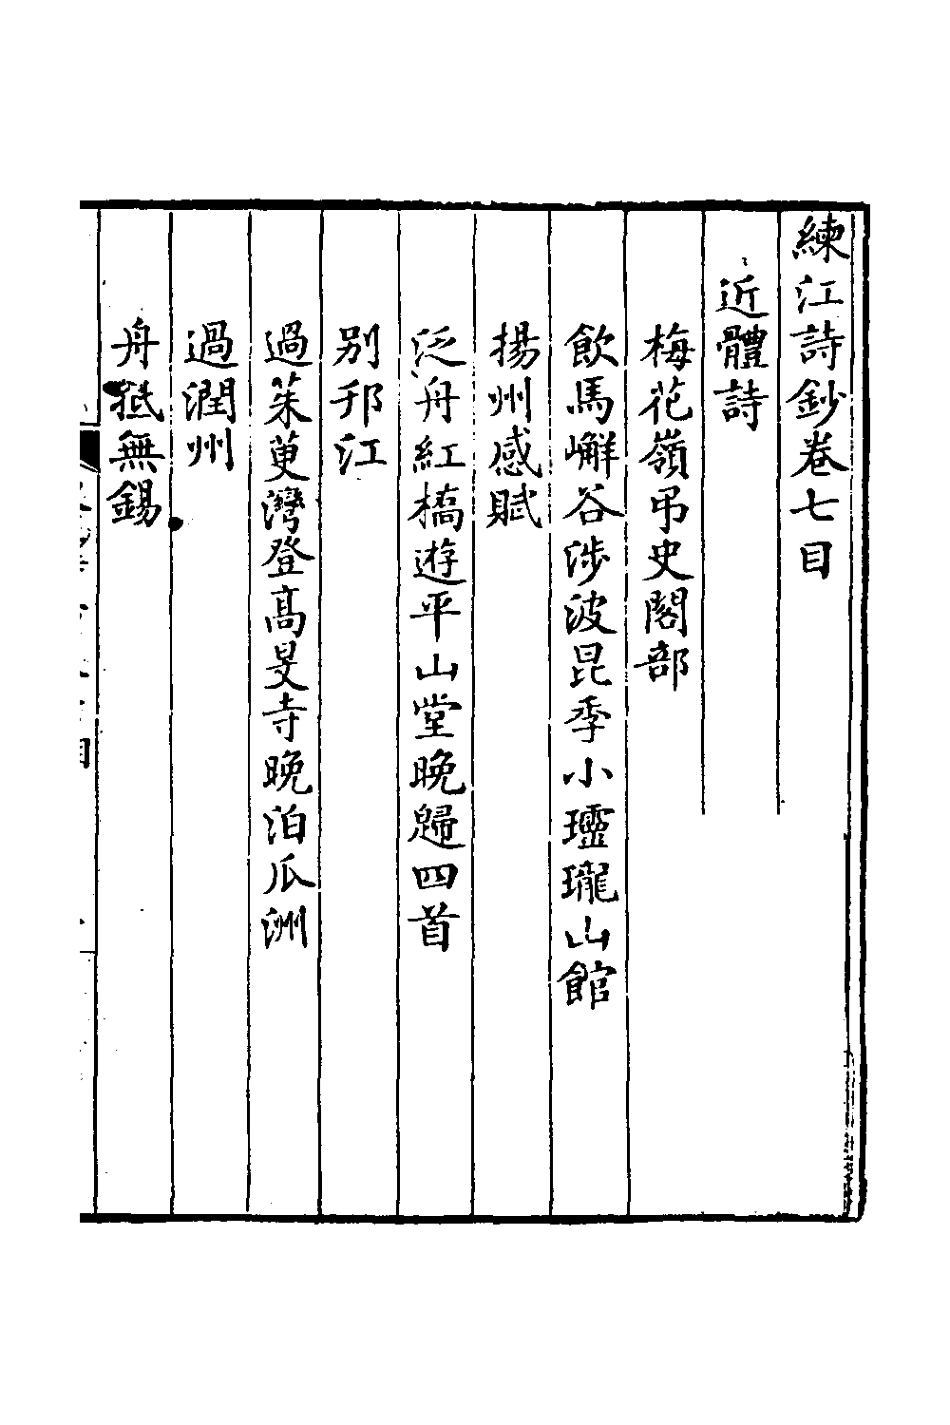 練江詩鈔卷七目
近體詩
梅花嶺吊史閣部
飲馬嶰谷涉波昆季小瓐瓏山館
揚州感賦
泛舟紅橋遊平山堂晚歸四首
别邗江
過茱萸灣登高旻寺晚泊瓜洲
過潤州
舟抵無錫